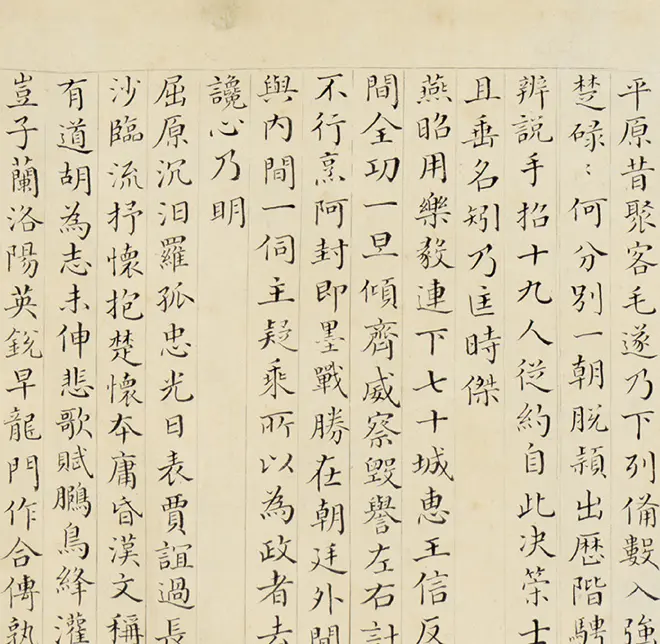 平原昔聚客毛遂乃下列備數入強
楚碌〻何分別一朝脫穎出歷階騁
辨說手招十九人從約自此決筞士
且垂名矧乃匡時傑
燕昭用樂毅連下七十城惠王信反
間全功一旦傾齊威察毀譽左右計
不行烹阿封即墨戰勝在朝廷外間
與內間一伺主疑乘所以為政者去
讒心乃明
屈原沉汨羅孤忠光日表賈誼過長
沙臨流抒懷抱楚懷本庸昏漢文稱
有道胡為志未伸悲歌賦鵩鳥絳灌
豈子蘭洛陽英銳早龍門作合傳孰